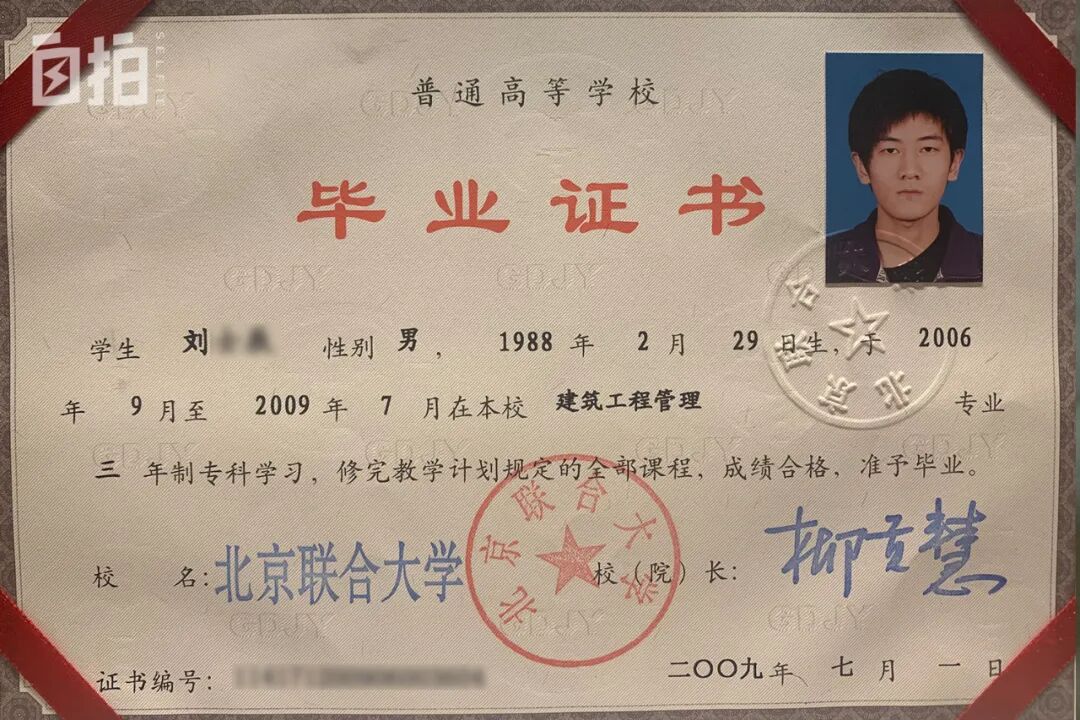 自拍
SELFIE
普通高等学校
毕业证书
学生 刘 性别 男， 1988 年 2 月 29 日生，于 2006
年 9 月至 2009 年 7 月在本校 建筑工程管理 专业
三 年制专科学习，修完教学计划规定的全部课程，成绩合格，准予毕业。
校 名：北京联合大学 校（院）长：柳贡慧
北京联合大学
北京联合
证书编号：
二〇〇九年 七 月 一 日
GDJY
GDJY
GDJY
GDJY
GDJY
GDJY
GDJY
GDJY
GDJY
GDJY
GDJY
GDJY